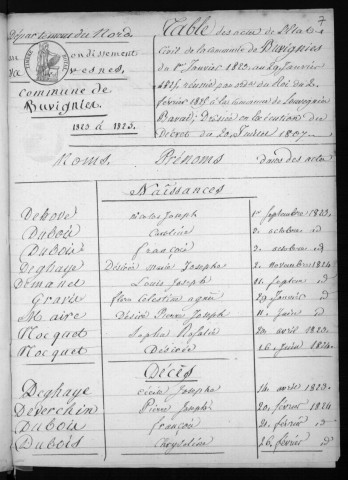 7
Département du Nord
Arrondissement
d'Avesnes
commune de
Buvignies
1823 à 1825.
Table des actes de l'état-
Civil de la commune de Buvignies
du 1er Janvier 1823. au 29 Janvier
1825, réunie par ordce du Roi du 2.
février 1825 à les communes de Louvignies
Bavai; Dressée en exécution du
Décret du 20 Juillet 1807.
Noms. Prénoms dates des actes
Naissances
nicolas Joseph 1er Septembre 1823.
Dubois Caroline 2. octobre id
Dubois françois 2. octobre id
Deghaye Désirée marie Josephe 2. novembre 1824
Demanet Louis Joseph 14 Septem id
Gravis flore Celestine agnès 29 Janvier id
Maire Désiré Pierre Joseph 11. Juin id
Nocquet Sophie Rosalie 20. avril 1823.
Nocquet Désirée 26. Juin 1824.
Décès
Deghaye Josephe 14. avril 1823.
Deverchin Pierre Joseph 20. février 1824
Dubois françois 21. février id
Dubois Chrysoline 26. février id